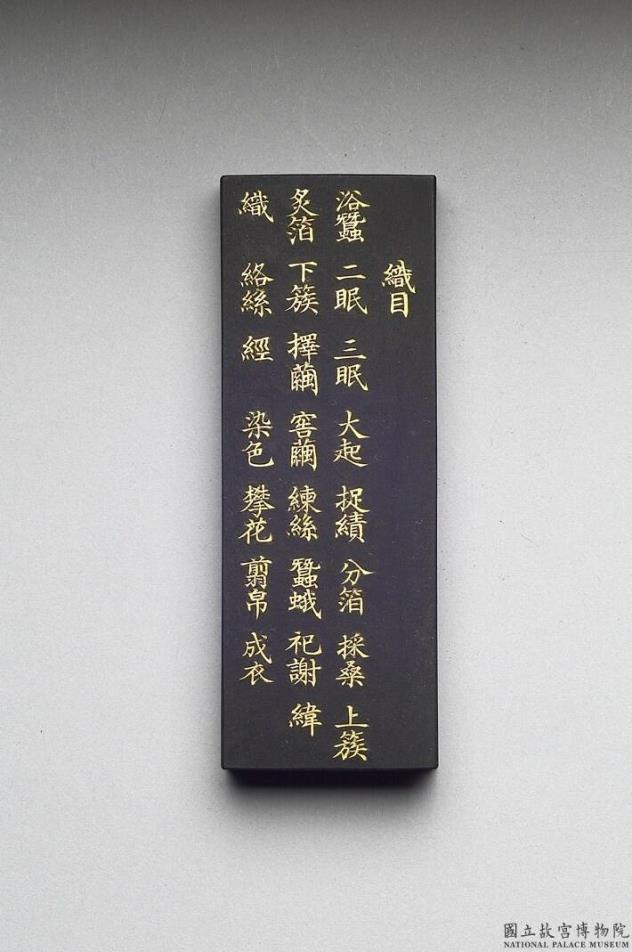 織目
浴蠶 二眠 三眠 大起 捉績 分箔 採桑 上簇
炙箔 下簇 擇繭 窖繭 練絲 蠶蛾 祀謝 緯
織 絡絲 經 染色 攀花 翦帛 成衣
國立故宮博物院
NATIONAL PALACE MUSEUM